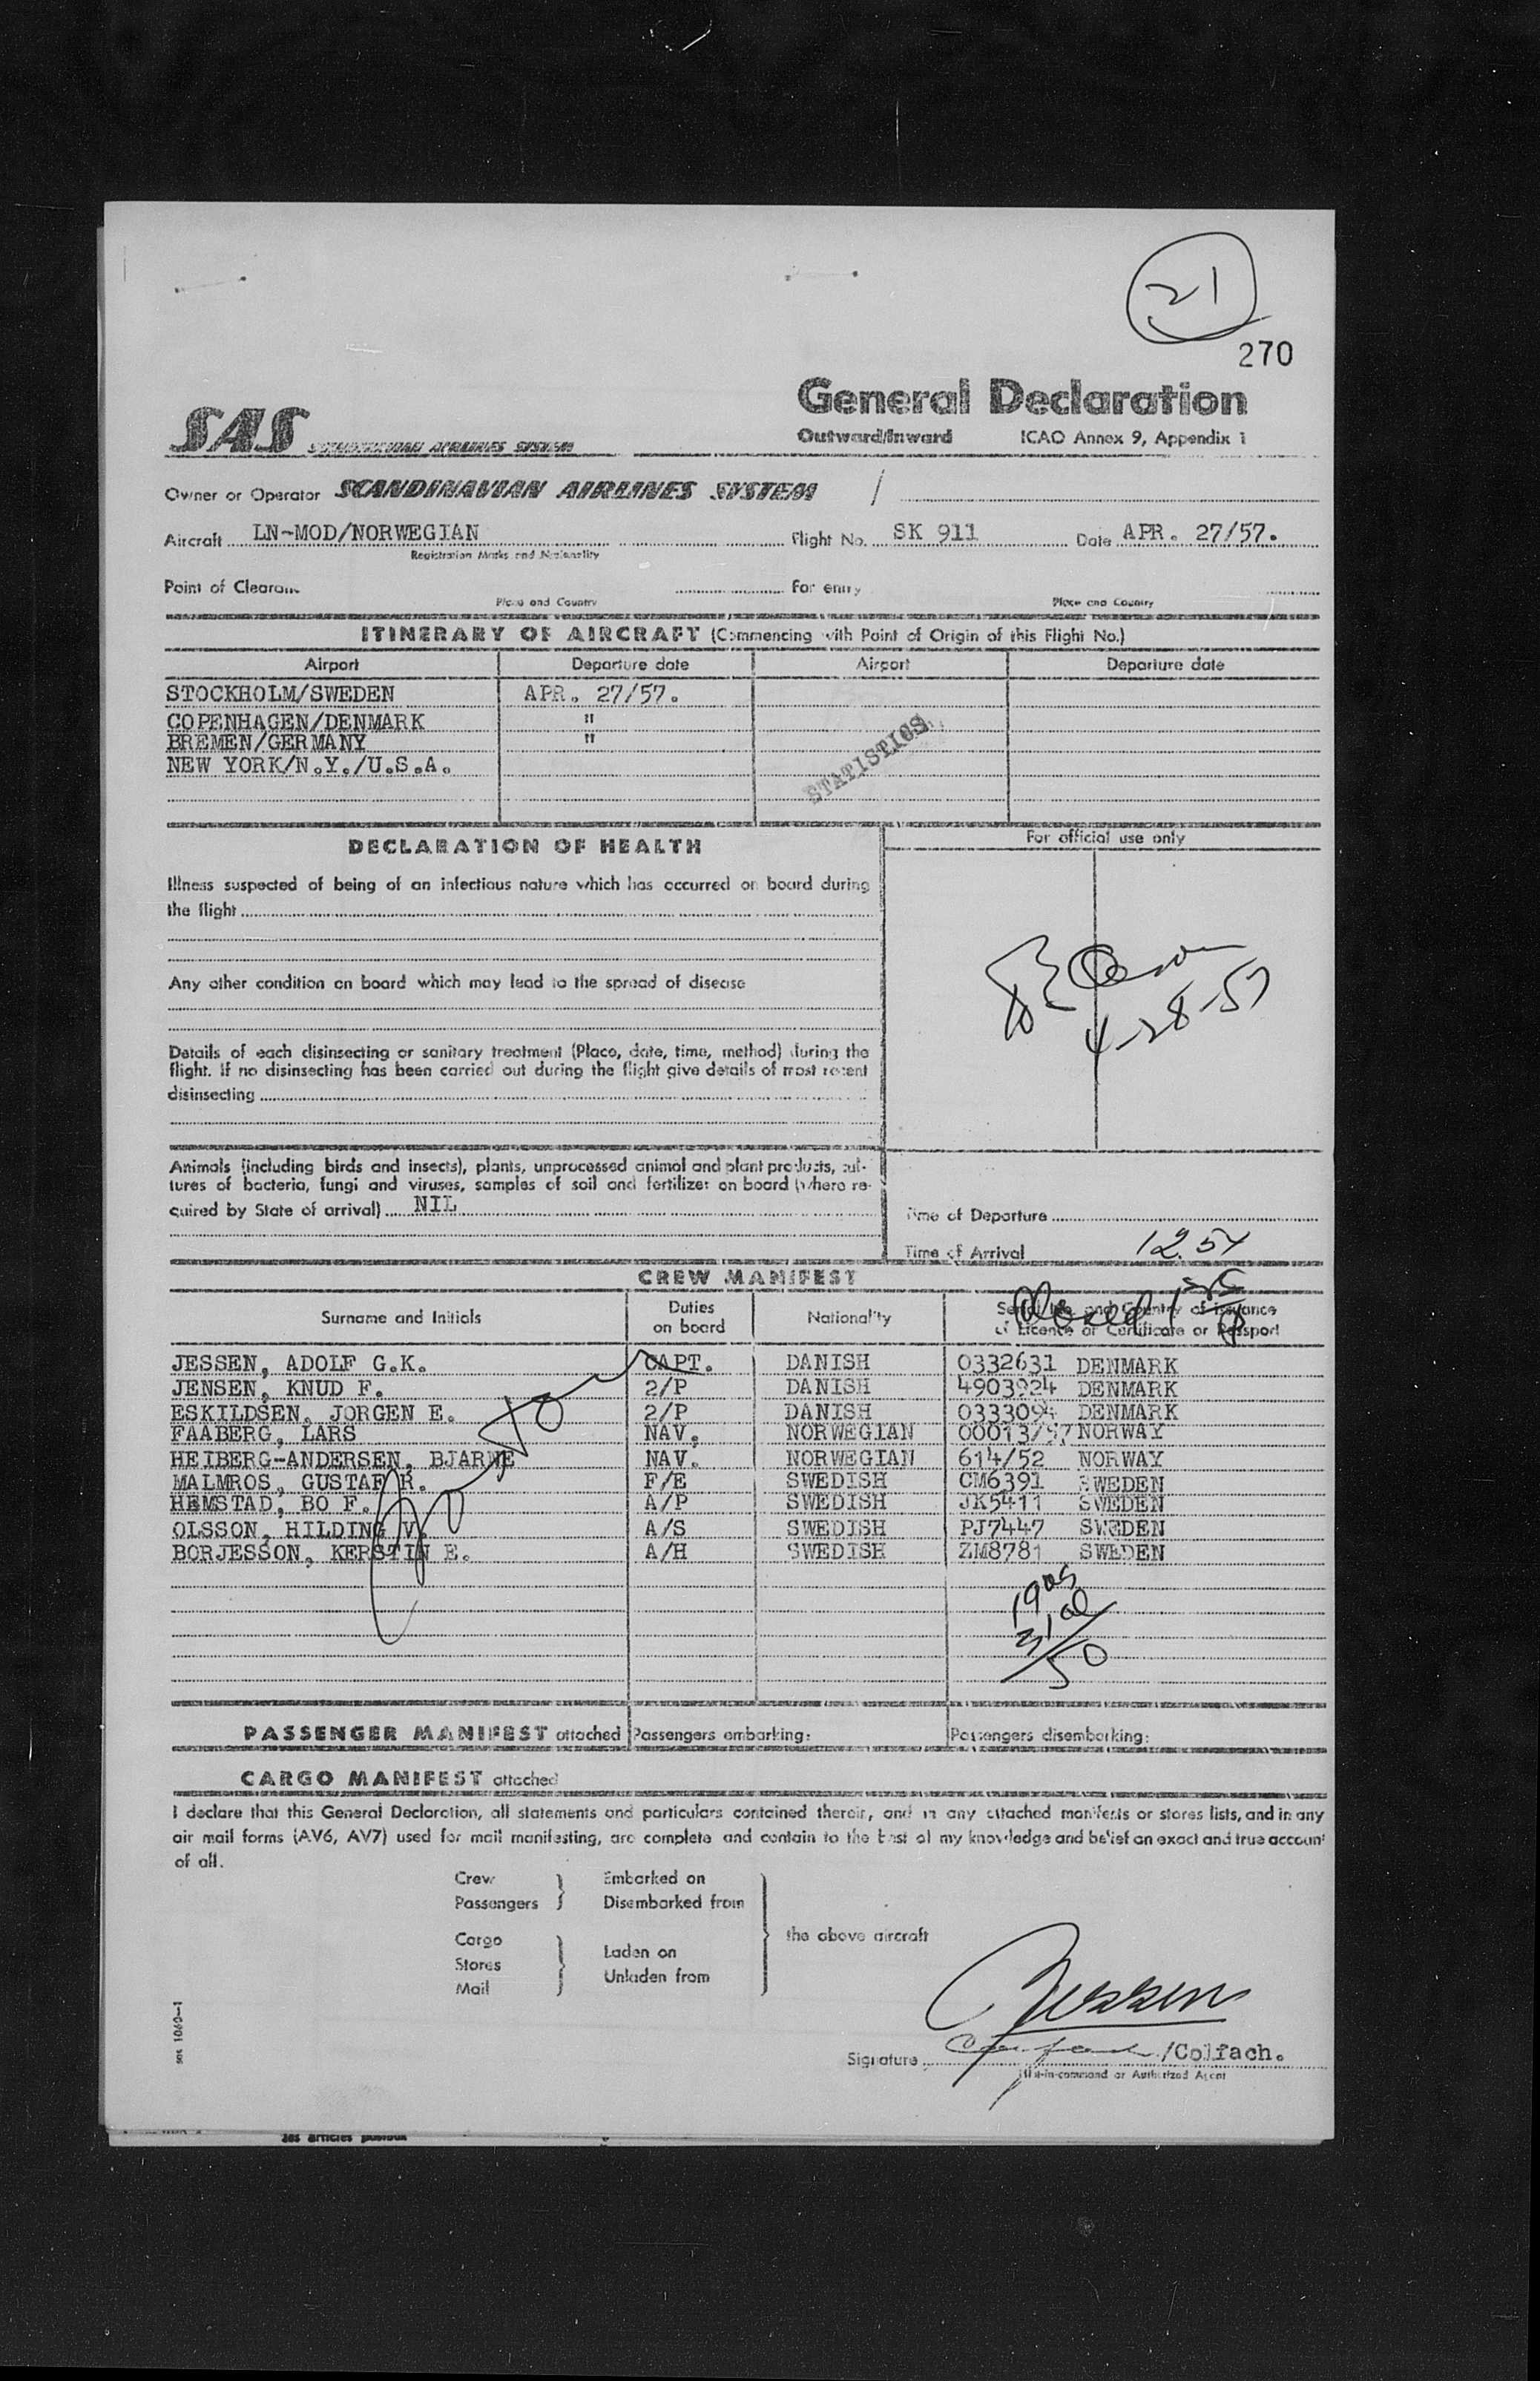 21
270
General Declaration
Outward/Inward ICAO Annex 9, Appendix 1
SAS SCANDINAVIAN AIRLINES SYSTEM
Owner or Operator SCANDINAVIAN AIRLINES SYSTEM /
Aircraft LN-MOD/NORWEGIAN Flight No. SK 911 Date APR. 27/57.
Registration Marks and Nationality
Point of Clearanc For entry
Place and Country Place and Country
ITINERARY OF AIRCRAFT (Commencing with Point of Origin of this Flight No.)
Airport Departure date Airport Departure date
STOCKHOLM/SWEDEN APR. 27/57.
COPENHAGEN/DENMARK "
BREMEN/GERMANY "
NEW YORK/N.Y./U.S.A.
STATISTICS
DECLARATION OF HEALTH
For official use only
Illness suspected of being of an infectious nature which has occurred on board during
the flight
Any other condition on board which may lead to the spread of disease
4-28-57
Details of each disinsecting or sanitary treatment (Place, date, time, method) during the
flight. If no disinsecting has been carried out during the flight give details of most recent
disinsecting
Animals (including birds and insects), plants, unprocessed animal and plant products, cul-
tures of bacteria, fungi and viruses, samples of soil and fertilizer on board (where re-
quired by State of arrival) NIL
Time of Departure
Time of Arrival 12.54
CREW MANIFEST
Surname and Initials Duties on board Nationality Serial No. and Country of issuance
of Licence or Certificate or Passport
JESSEN, ADOLF G.K. CAPT. DANISH 0332631 DENMARK
JENSEN, KNUD F. 2/P DANISH 4903924 DENMARK
ESKILDSEN, JORGEN E. 2/P DANISH 0333094 DENMARK
FAABERG, LARS NAV. NORWEGIAN 00013/57 NORWAY
HEIBERG-ANDERSEN, BJARNE NAV. NORWEGIAN 614/52 NORWAY
MALMROS, GUSTAF R. F/E SWEDISH CM6391 SWEDEN
HEMSTAD, BO F. A/P SWEDISH JK5411 SWEDEN
OLSSON, HILDING V. A/S SWEDISH PJ7447 SWEDEN
BORJESSON, KERSTIN E. A/H SWEDISH ZM8781 SWEDEN
50
PASSENGER MANIFEST attached Passengers embarking: Passengers disembarking:
CARGO MANIFEST attached
I declare that this General Declaration, all statements and particulars contained therein, and in any attached manifests or stores lists, and in any
air mail forms (AV6, AV7) used for mail manifesting, are complete and contain to the best of my knowledge and belief an exact and true account
of all.
Crew Embarked on
Passengers Disembarked from
the above aircraft
Cargo Laden on
Stores
Unladen from
Mail
Jessen
Signature /Colfach.
Pilot-in-command or Authorized Agent
SAS 1060-1